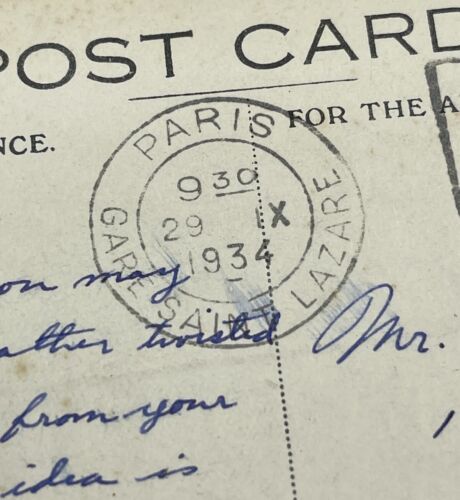 POST CARD
NCE.
FOR THE A
PARIS
9 30
29 IX
1934
GARE SAINT LAZARE
on may
ather twisted
Mr.
from your
idea is